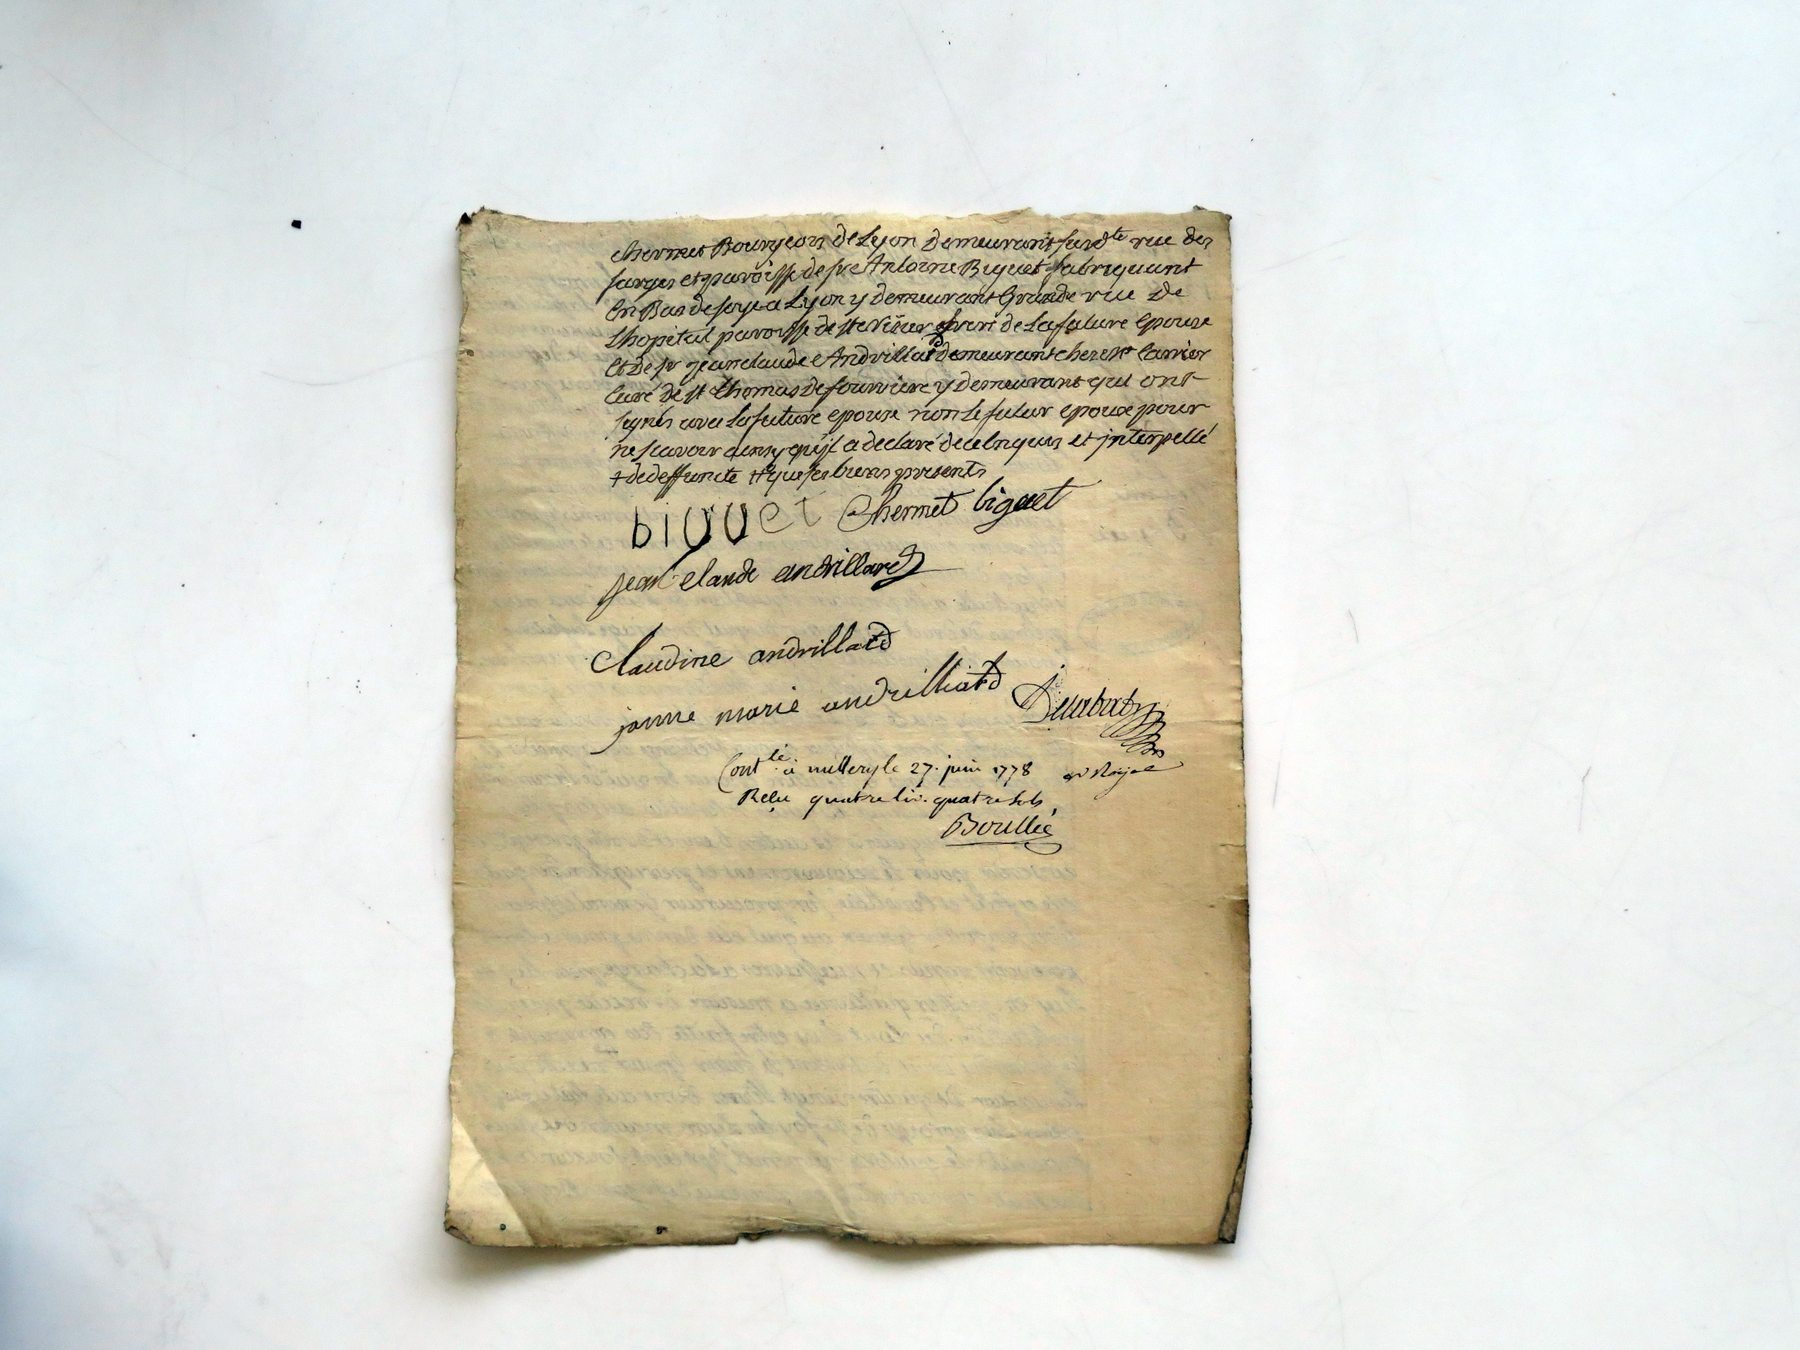 chermet Bourgeois de Lyon demeurant susdte rue des
farges et paroisse de sr Antoine Biguet fabriquant
en Bas de soye a Lyon y demeurant Grande rue de
Lhopital paroisse de st Nizier frere de La future epouse
et de sr jean claude Andrillard demeurant chez Mr
Curé de st thomas de fourviere y demeurant qui ont
signés avec La future epouse non Le futur epoux pour
ne scavoir ainsy qu'jl a declaré de ce Enquis et jnterpellé
+ de deffunte ++ que ses biens presents
biguet Chermet biguet
jean Claude andrillard
Claudine andrillard
janne marie andrilliard
Contlé à millery le 27. juin 1778
Reçu quatre liv. quatre sols
Boullié